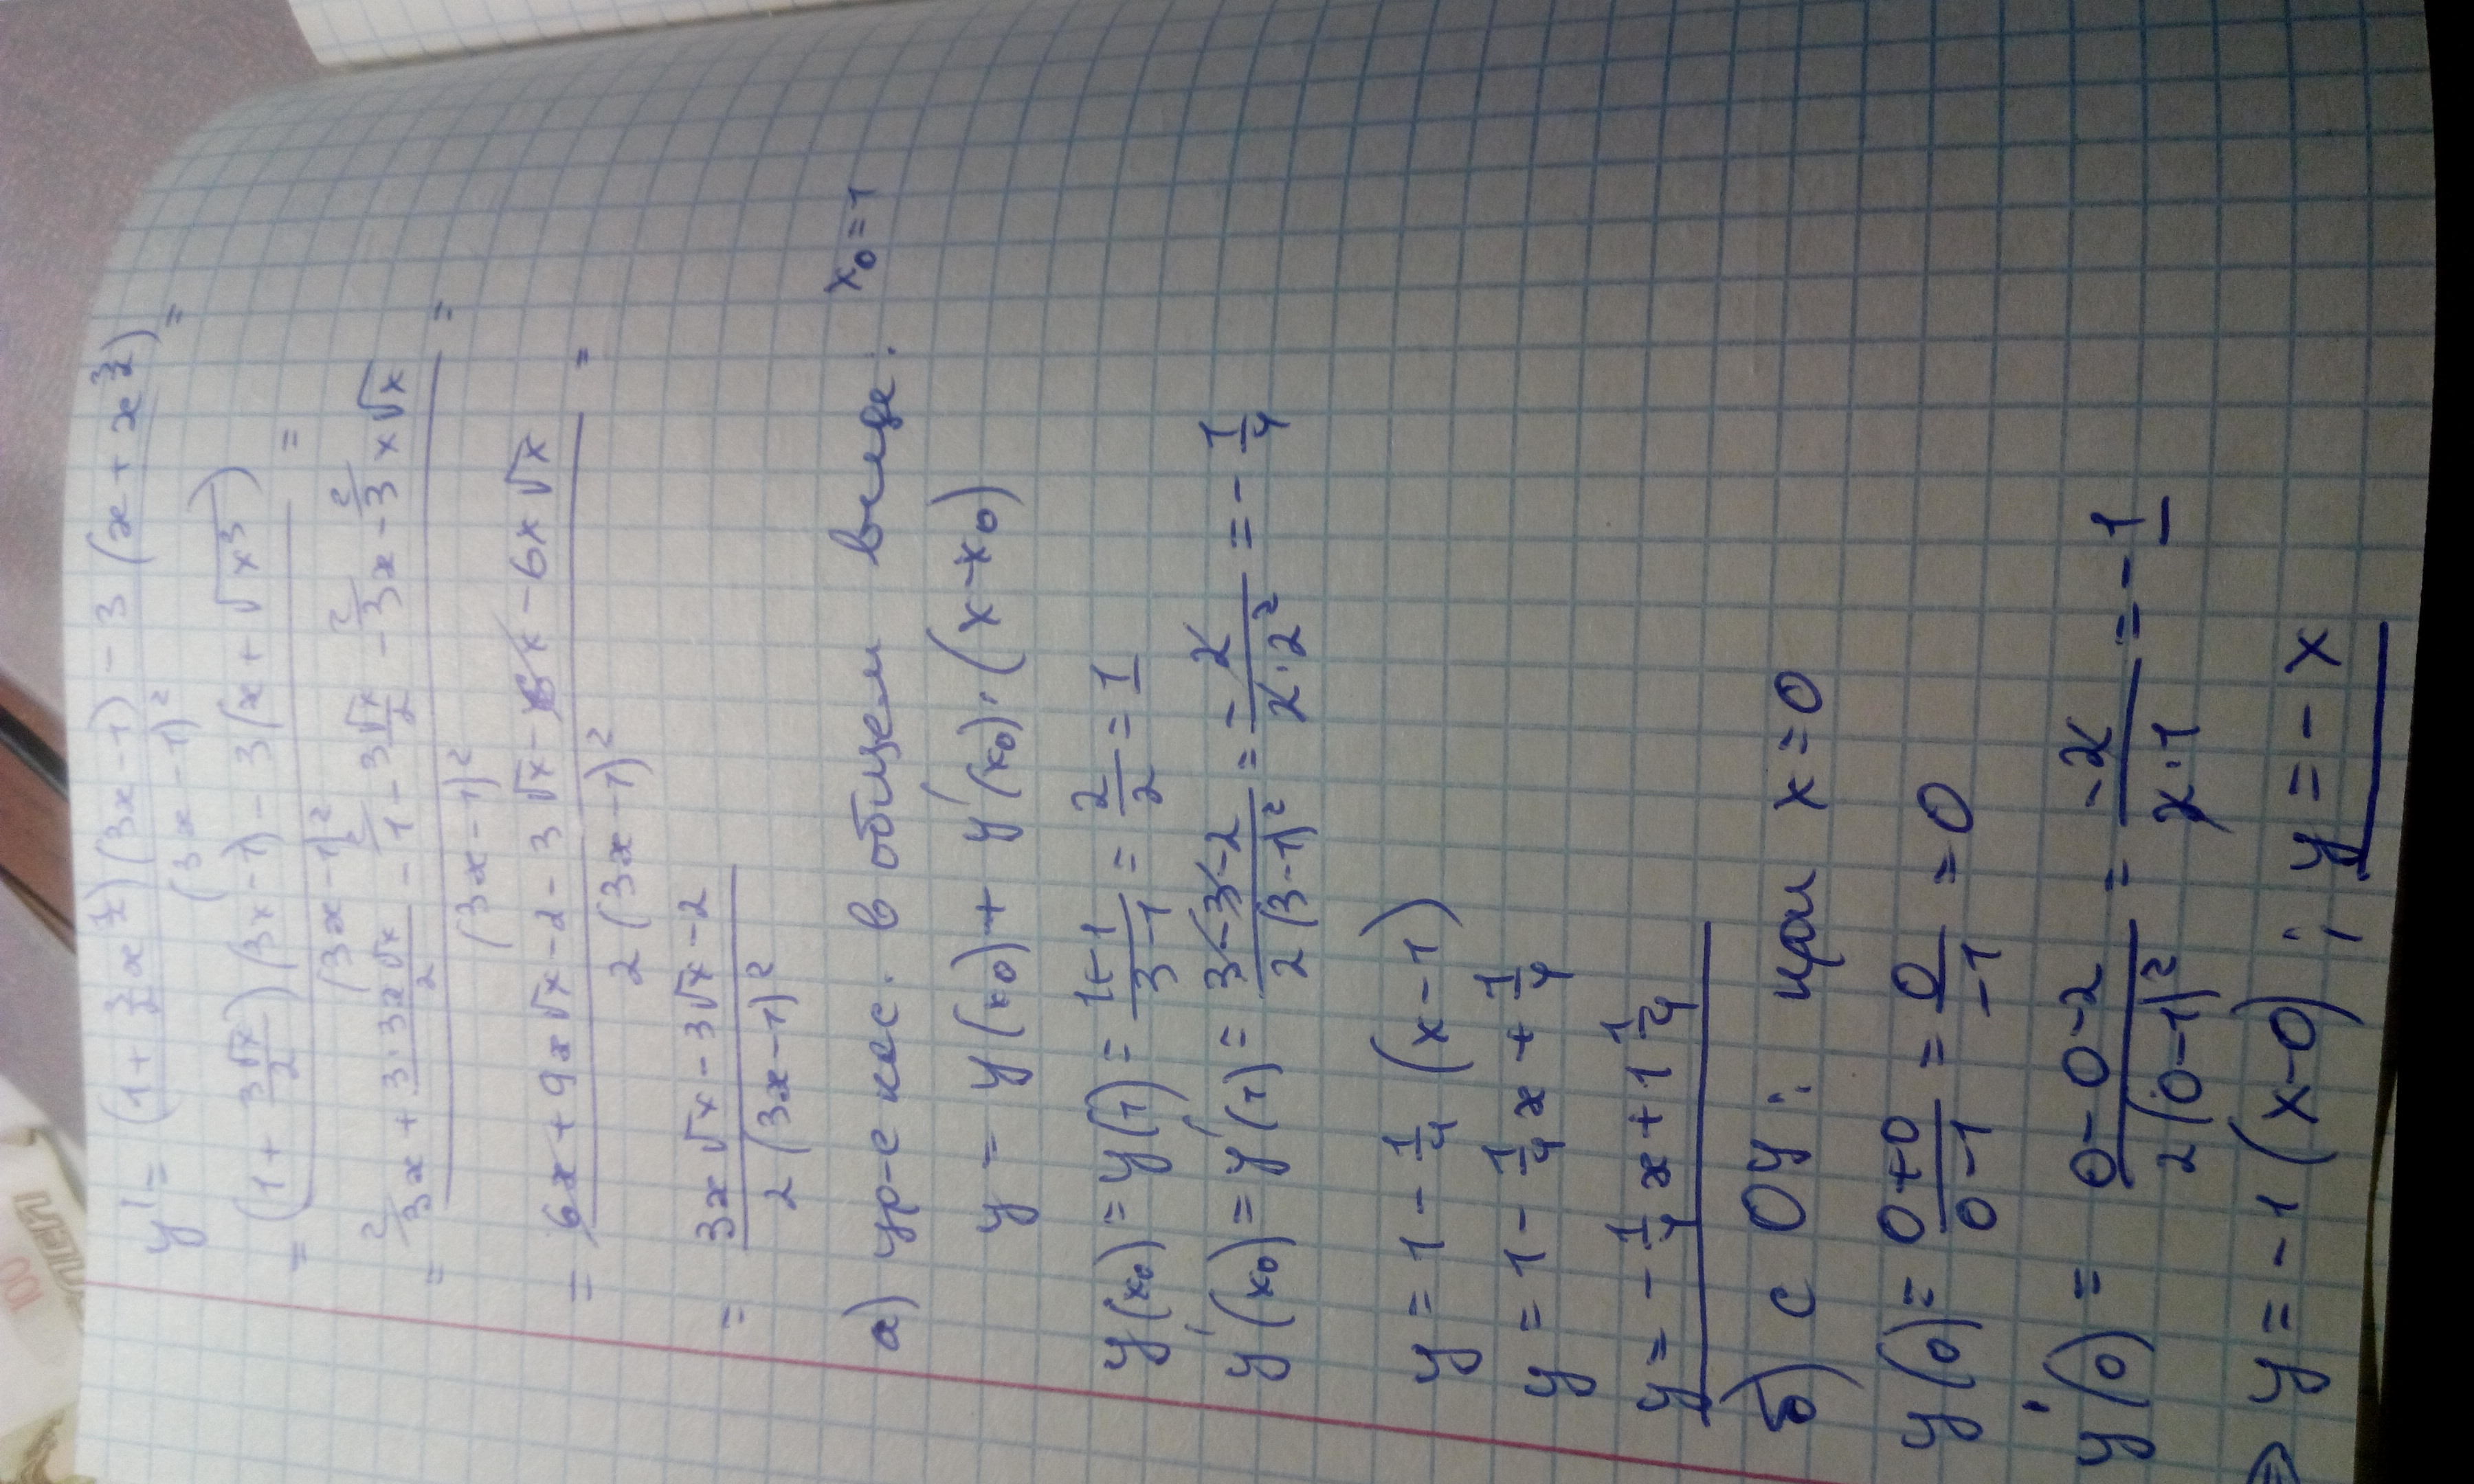 y' = (1 + 3/2 x^(1/2))(3x-1) - 3(x + x^(3/2)) / (3x-1)² =
= (1 + 3√x/2)(3x-1) - 3(x + √x³) / (3x-1)² =
= 3x + 3·3x√x/2 - 1 - 3√x/2 - 3x - 3x√x / (3x-1)² =
= 6x + 9x√x - 2 - 3√x - 6x - 6x√x / 2(3x-1)² =
= 3x√x - 3√x - 2 / 2(3x-1)²
а) ур-е кас. в общем виде: x₀=1
y = y(x₀) + y'(x₀)·(x-x₀)
y(x₀) = y(1) = 1+1/3-1 = 2/2 = 1
y'(x₀) = y'(1) = 3-3-2/2(3-1)² = -2/2·2² = -1/4
y = 1 - 1/4 (x-1)
y = 1 - 1/4 x + 1/4
y = -1/4 x + 1 1/4
б) с Оy: при x=0
y(0) = 0+0/0-1 = 0/-1 = 0
y'(0) = 0-0-2/2(0-1)² = -2/2·1 = -1
y = -1(x-0) ; y = -x
100